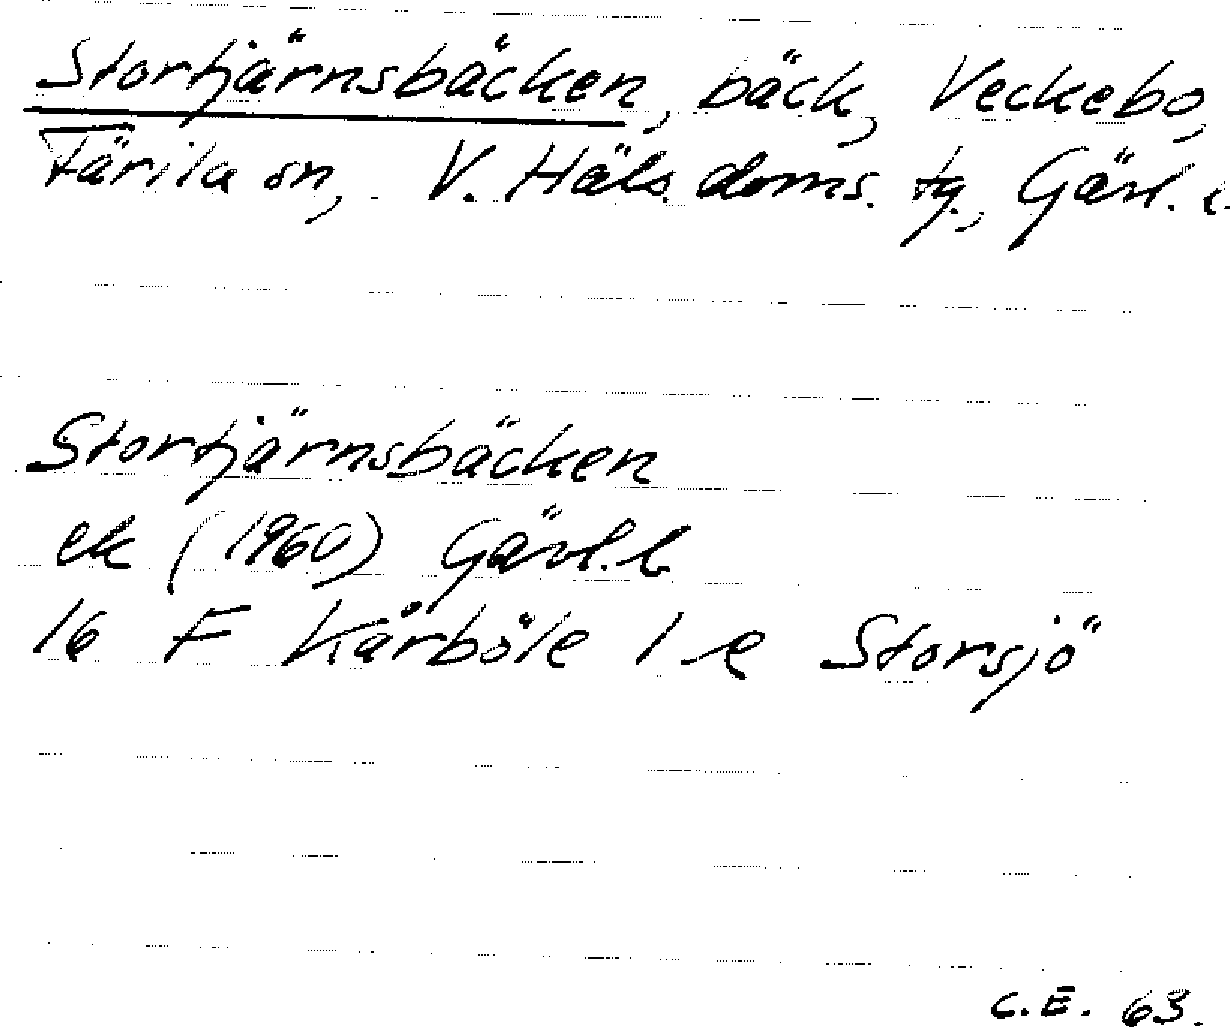 Stortjärnsbäcken, bäck, Veckebo,
Färila sn, V. Häls. doms. tg., Gävl. l.
Stortjärnsbäcken
ek (1960) Gävl. l.
16 F Kårböle 1 e Storsjö
C.E. 63.